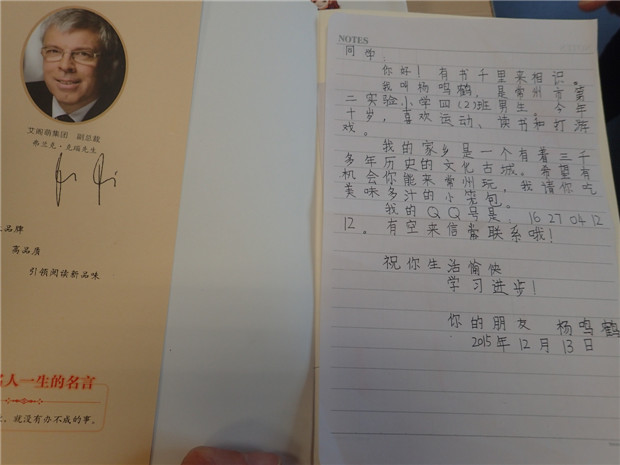 艾阁萌集团 副总裁
弗兰克·克瑙先生
品牌
高品质
引领阅读新品味
人一生的名言
就没有办不成的事。
NOTES
同学:
你好!有书千里来相识。
我叫杨鸣鹤,是常州市第
二实验小学四(2)班男生。今年
十岁,喜欢运动、读书和打游
戏。
我的家乡是一个有着三千
多年历史的文化古城。希望有
机会你能来常州玩,我请你吃
美味多汁的小笼包。
我的QQ号是:16270412
12。有空来信常联系哦!
祝你生活愉快
学习进步!
你的朋友 杨鸣鹤
2015年12月13日